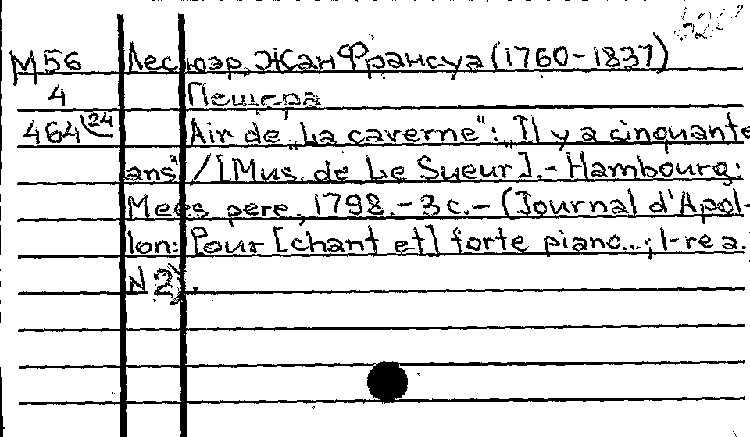 М56 Лесюэр, Жан Франсуа (1760-1837)
4 Пещера
464(24 Air de „La caverne“: „Il y a cinquante
ans“ / [Mus. de Le Sueur]. - Hambourg:
Mees père, 1798. - 3 c. - (Journal d'Apol-
lon: Pour [chant et] forte piano...; 1-re a.
N 2).